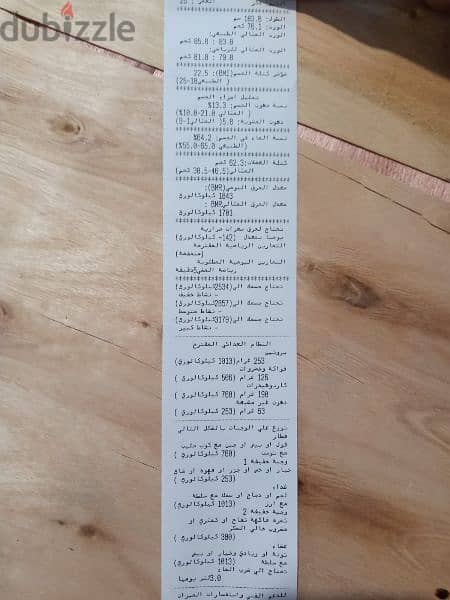 dubizzle
العمر : 26
الطول: 183.0 سم
الوزن: 76.1 كجم
الوزن المثالي الطبيعي:
65.0 : 83.0 كجم
الوزن المثالي للرياضي:
81.0 : 79.0 كجم
مؤشر كتلة الجسم(BMI): 22.5
( الطبيعي18-25)
تحليل اجزاء الجسم
نسبة دهون الجسم: 13.3%
( المثالي 21.0-10.0%)
دهون الحشوية: 5.0( المثالي1-9)
نسبة الماء في الجسم: 64.2%
(الطبيعي 65.0-55.0%)
كتلة العضلات: 62.3 كجم
المثالي(46.5-38.5 كجم)
معدل الحرق اليومي(BMR):
1843 كيلوكالوري
معدل الحرق المثالي BMR :
1781 كيلوكالوري
تحتاج لحرق سعرات حرارية
يوميا بمعدل (142- كيلوكالوري)
التمارين الرياضية المقترحة
(منخفضة)
التمارين اليومية المطلوبة
رياضة المشي5دقيقة
تحتاج جسمك الي(2534كيلوكالوري)
- نشاط خفيف
تحتاج جسمك الي(2857كيلوكالوري)
- نشاط متوسط
تحتاج جسمك الي(3179كيلوكالوري)
- نشاط كبير
النظام الغذائي المقترح
بروتين
253 غرام(1013 كيلوكالوري)
فواكة وخضروات
126 غرام (506 كيلوكالوري )
كاربوهيدرات
190 غرام (760 كيلوكالوري )
دهون غير مشبعة
63 غرام (253 كيلوكالوري )
توزع علي الوجبات بالشكل التالي
فطار
فول او بيض او جبن مع كوب حليب
مع توست (760 كيلوكالوري )
وجبة خفيفة 1
خيار او خس او جزر او قهوة او شاي
(253 كيلوكالوري )
غداء
لحم او دجاج او سمك مع سلطة
مع ارز (1013 كيلوكالوري )
وجبة خفيفة 2
ثمرة فاكهة تفاح او كمثري او
مشروب خالي السكر
(380 كيلوكالوري )
عشاء
تونة او زبادي وخيار او بيض
مع سلطة (1013 كيلوكالوري )
تحتاج الي شرب الماء
3.0لتر يوميا
للدعم الفني واستفسارات الميزان